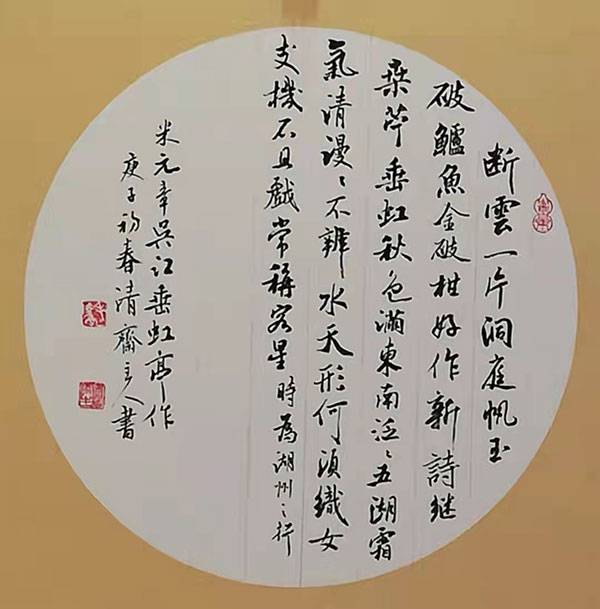 断雲一片洞庭帆玉
破鱸魚金破柑好作新詩继
桑苧垂虹秋色滿東南泛〻五湖霜
氣清漫〻不辨水天形何湏織女
支機石且戲常稱客星時為湖州之行
米元章吳江垂虹亭作
庚子初春清齋主人書